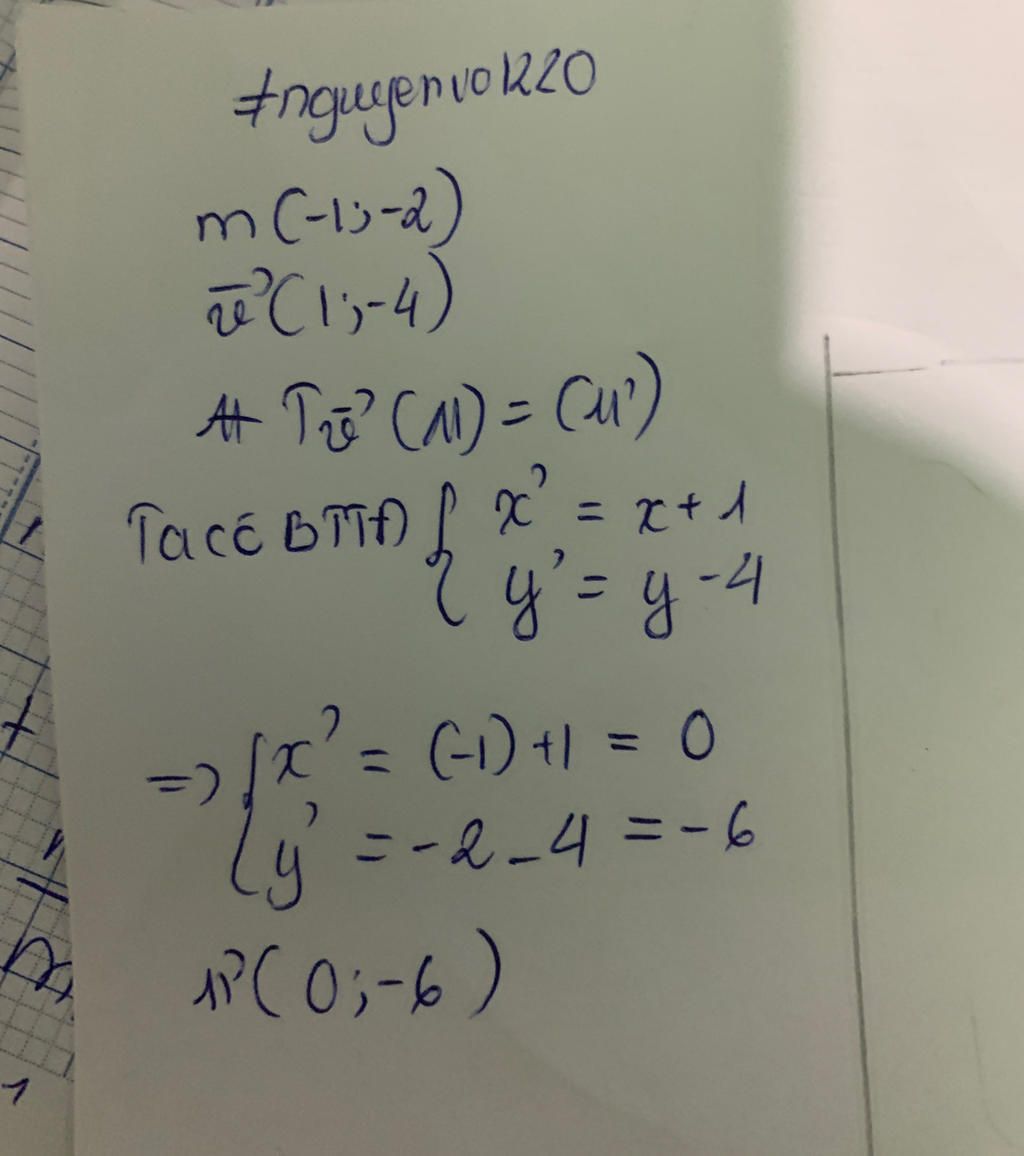 #nguyenvo1220
M(-1;-2)
v⃗(1;-4)
Tv⃗(M) = (M')
Ta có BTTĐ { x' = x + 1
y' = y - 4
=> { x' = (-1) + 1 = 0
y' = -2 - 4 = -6
M'(0;-6)